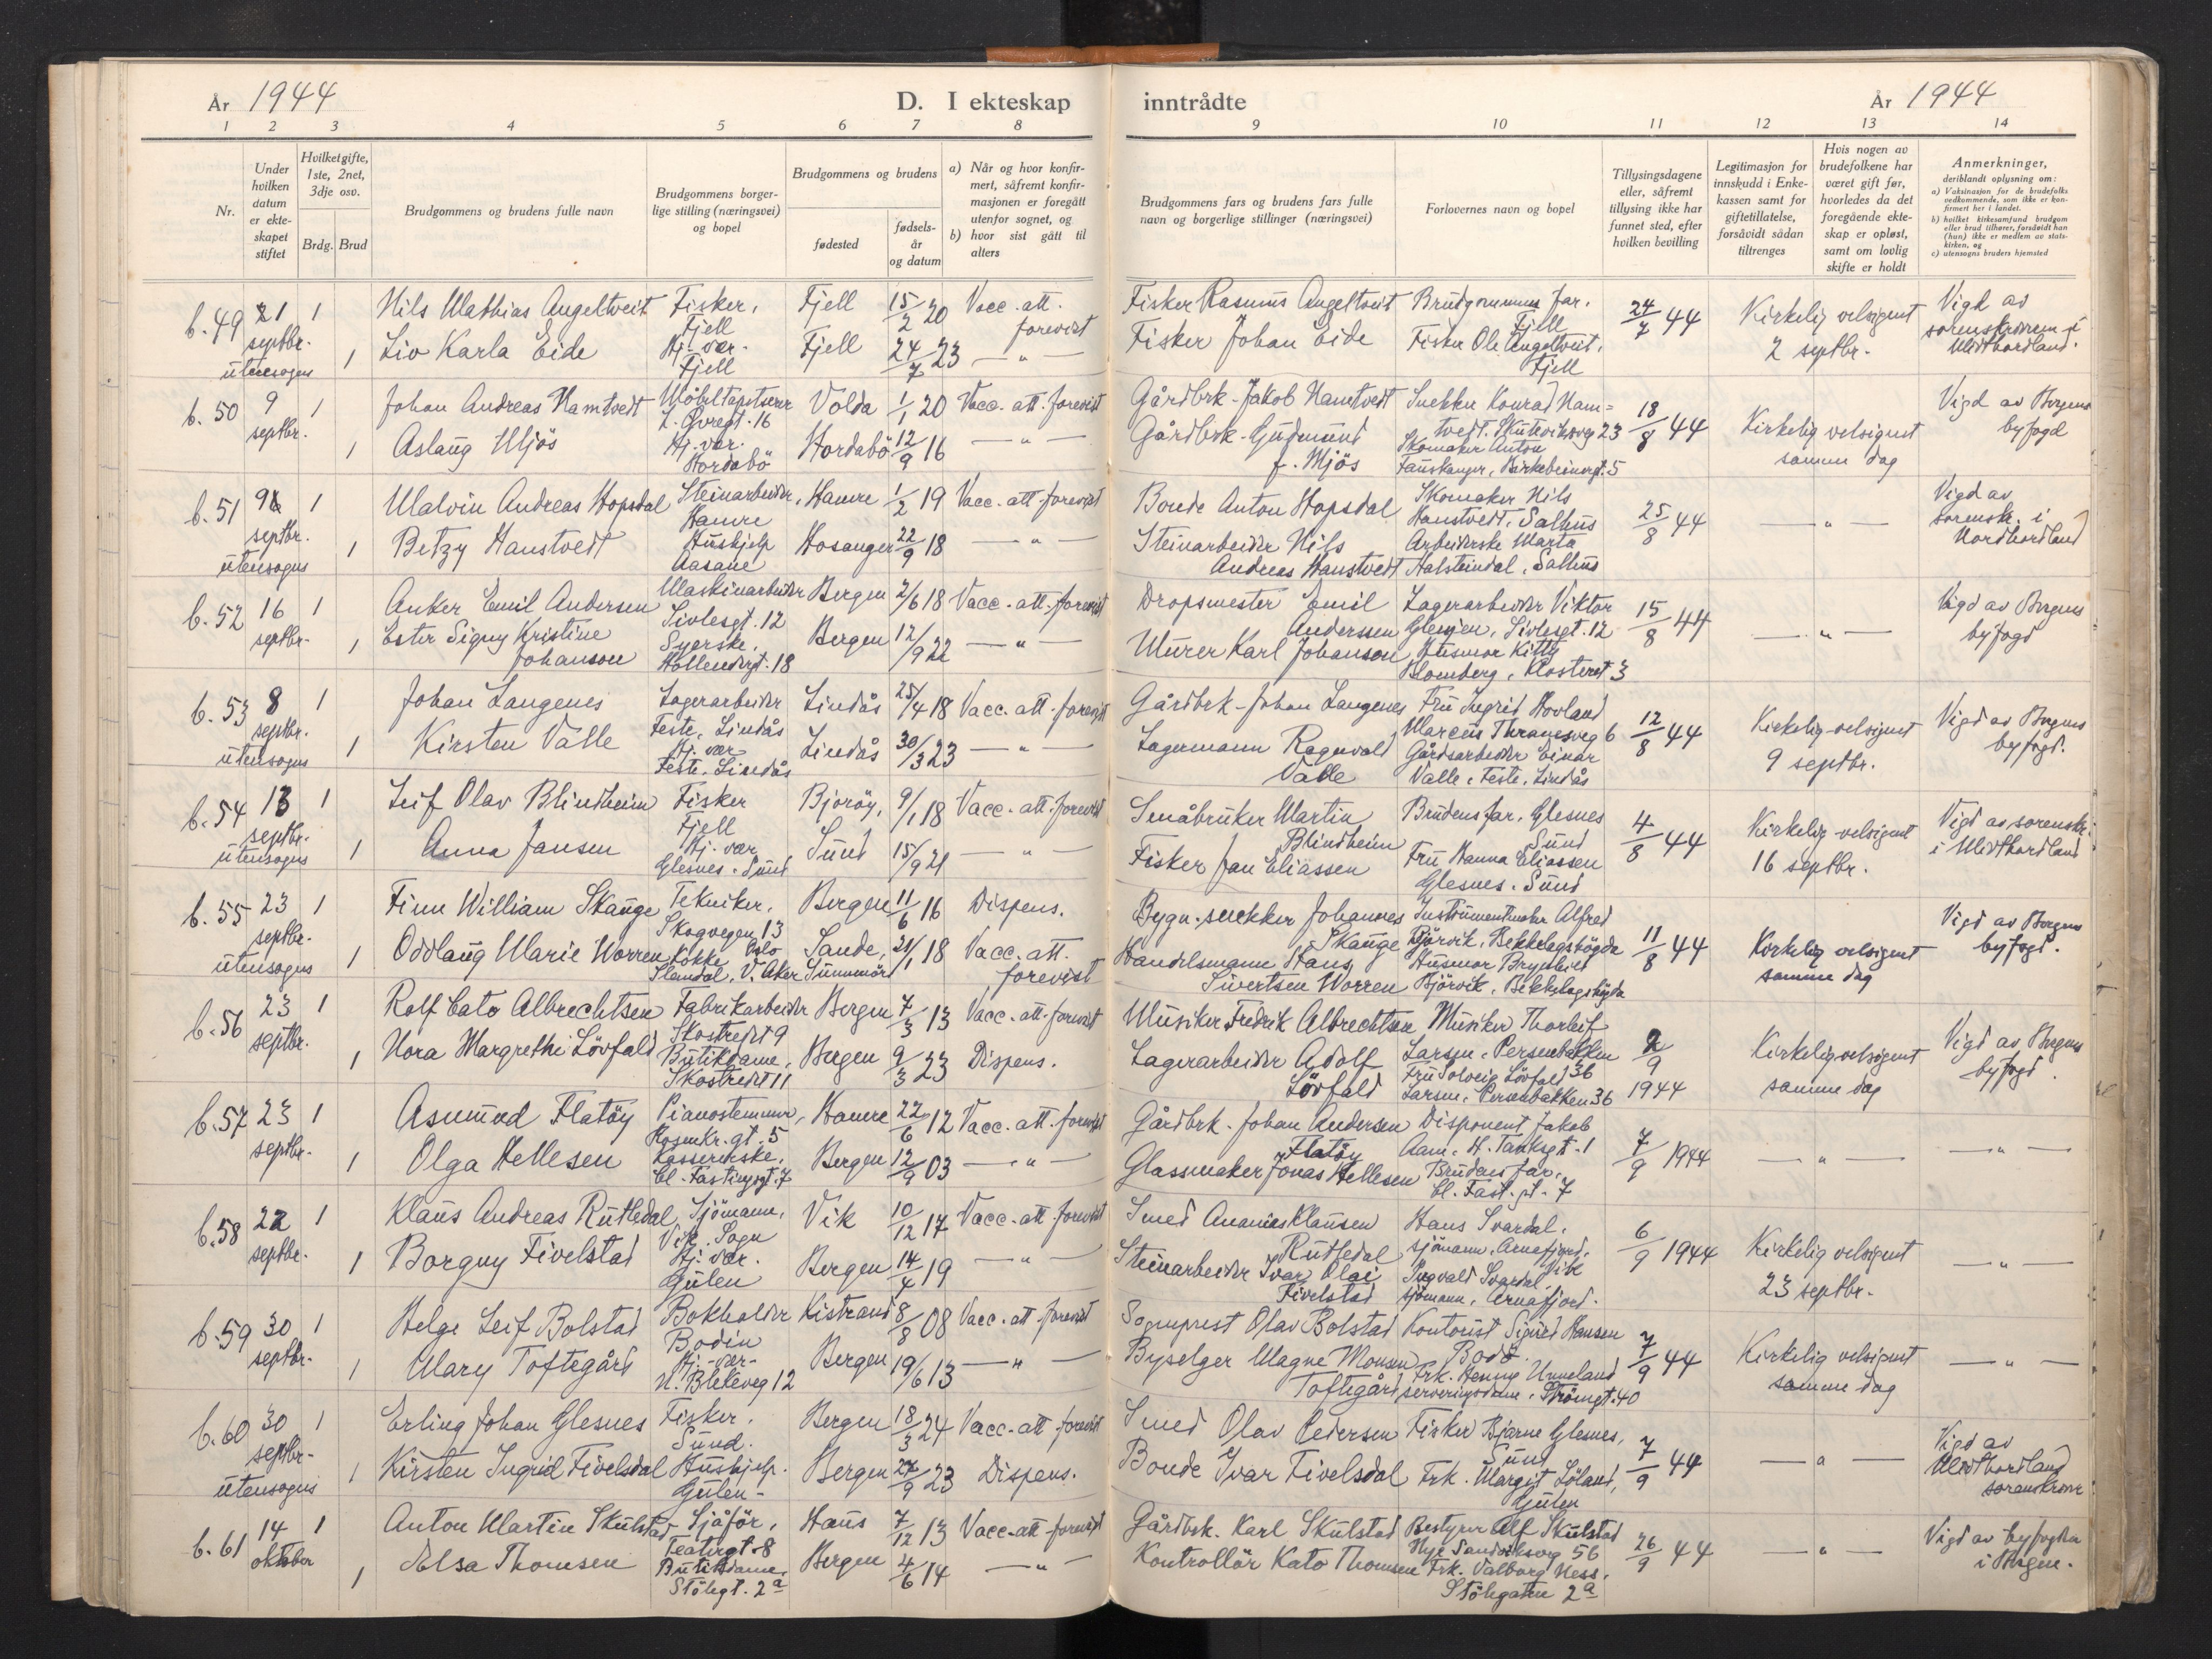 År 1944
D. I ekteskap inntrådte
År 1944
1 2 3 4 5 6 7 8 9 10 11 12 13 14
Nr.
Under hvilken datum er ekteskapet stiftet
Hvilket gifte, 1ste, 2net, 3dje osv.
Brdg. Brud
Brudgommens og brudens fulle navn
Brudgommens borgerlige stilling (næringsvei) og bopel
Brudgommens og brudens
fødested
fødselsår og datum
a) Når og hvor konfirmert, såfremt konfirmasjonen er foregått utenfor sognet, og
b) hvor sist gått til alters
Brudgommens fars og brudens fars fulle navn og borgerlige stillinger (næringsvei)
Forlovernes navn og bopel
Tillysingsdagene eller, såfremt tillysing ikke har funnet sted, efter hvilken bevilling
Legitimasjon for innskudd i Enkekassen samt for giftetillatelse, forsåvidt sådan tiltrenges
Hvis nogen av brudefolkene har været gift før, hvorledes da det foregående ekteskap er opløst, samt om lovlig skifte er holdt
Anmerkninger, deriblandt oplysning om:
a) Vaksinasjon for de brudefolks vedkommende, som ikke er konfirmert her i landet.
b) hvilket kirkesamfund brudgom eller brud tilhører, forsåvidt han (hun) ikke er medlem av statskirken, og
c) utensogns bruders hjemsted
b. 49 21 septbr. utensogns 1 Nils Mathias Angeltveit Fisker, Fjell Fjell 15/2 20 Vacc. att. forevist Fisker Rasmus Angeltveit Brudgommens far, Fjell 24/7 44 Kirkelig velsignet 2 septbr. Vigd av sorenskriveren i Midthordland.
1 Liv Karla Eide Hj. vær. Fjell Fjell 24/7 23 — " — Fisker Johan Eide Fisker Ole Angeltveit, Fjell
b. 50 9 septbr. 1 Johan Andreas Hamtvedt Möbeltapetserer Volda 1/1 20 Vacc. att. forevist Gårdbrk. Jakob Hamtvedt Snekker Konrad Hamtvedt. Skuteviksveg 23 18/8 44 Kirkelig velsignet samme dag Vigd av Bergens byfogd
1 Aslaug Mjös Hj. vær. Hordabö Hordabö 12/9 16 — " — Gårdbrk. Gudmund Mjös Skomaker Anton Fauskanger, Birkebeinergt. 5
b. 51 9 septbr. utensogns 1 Malvin Andreas Hopsdal Steinarbeider, Hamre Hamre 1/2 19 Vacc. att. forevist Bonde Anton Hopsdal Skomaker Nils Hanstvedt, Salhus 25/8 44 — " — Vigd av sorensk. i Nordhordland
1 Betzy Hanstvedt Hushjelp Aasane Hosanger 22/9 18 — " — Steinarbeider Nils Andreas Hanstvedt Arbeiderske Marta Halsteindal, Salhus
b. 52 16 septbr. 1 Anker Emil Andersen Maskinarbeider Sivlesgt. 12 Bergen 2/6 18 Vacc. att. forevist Dropsmester Emil Anderssen Lagerarbeider Viktor, Sivlesgt. 12 15/8 44 — " — Vigd av Bergens byfogd
1 Ester Signy Kristine Johanson Syerske, Hollendergt. 18 Bergen 12/9 22 — " — Murer Karl Johanson Husmor Kitty Blomberg, Klosteret 3
b. 53 8 septbr. utensogns 1 Johan Langenes Lagerarbeider Feste, Lindås Lindås 25/4 18 Vacc. att. forevist Gårdbrk. Johan Langenes Fru Ingrid Hovland Marcus Thranesveg 6 12/8 44 Kirkelig velsignet 9 septbr. Vigd av Bergens byfogd.
1 Kirsten Valle Hj. vær Feste, Lindås Lindås 30/3 23 — " — Lagermann Ragnvald Valle Gårdsarbeider Einar Valle, Feste, Lindås
b. 54 13 septbr. utensogns 1 Leif Olav Blindheim Fisker Fjell Bjoröy, 9/1 18 Vacc. att. forevist Småbruker Martin Blindheim Brudens far, Glesnes Sund 4/8 44 Kirkelig velsignet 16 septbr. Vigd av sorenskr. i Midthordland
1 Anna Jansen Hj. vær Glesnes. Sund Sund 15/9 21 — " — Fisker Jan Eliassen Fru Hanna Eliassen Glesnes. Sund
b. 55 23 septbr. utensogns 1 Finn William Skauge Tekniker, Skogvegen 13 Oslo Bergen 11/6 16 Dispens. Bygn. snekker Johannes Skauge Instrumentmaker Alfred Björvik, Bekkelagshögda 11/8 44 Kirkelig velsignet samme dag Vigd av Bergens byfogd.
1 Oddlaug Marie Worren Kokke, V. Aker Sande, Sunnmöre 21/1 18 Vacc. att. forevist Handelsmann Hans Sivertsen Worren Husmor Brynhild Björvik, Bekkelagshögda
b. 56 23 septbr. 1 Rolf Cato Albrechtsen Fabrikarbeider Skostredet 9 Bergen 7/3 13 Vacc. att. forevist Musiker Fredrik Albrechtsen Musiker Thorleif Larsen, Persenbakken 36 2/9 1944 Kirkelig velsignet samme dag Vigd av Bergens byfogd.
1 Nora Margrethe Lövfald Butikdame, Skostredet 11 Bergen 9/3 23 Dispens. Lagerarbeider Adolf Lövfald Fru Solveig Lövfald Larsen, Persenbakken 36
b. 57 23 septbr. 1 Asmund Flatöy Pianostemmer, Rosenkr. gt. 5 Hamre 22/6 12 Vacc. att. forevist Gårdbrk. Johan Andersen Flatöy Disponent Jakob Aam, H. Tanksgt. 1 7/9 1944 — " — — " —
1 Olga Hellesen Kassererske, Cl. Fastingsgt. 7 Bergen 12/9 03 — " — Glassmaker Jonas Hellesen Brudens far, Cl. Fast. gt. 7
b. 58 22 septbr. 1 Klaus Andreas Rutledal Sjömann, Vik, Sogn Vik 10/12 17 Vacc. att. forevist Smed Ananias Klausen Rutledal Hans Svardal, sjömann, Arnafjord, Vik 6/9 1944 Kirkelig velsignet 23 septbr. — " —
1 Borgny Fivelstad Hj. vær. Gulen Bergen 14/4 19 — " — Steinarbeider Ivar Olai Fivelstad Ingvald Svardal sjömann, Arnafjord.
b. 59 30 septbr. 1 Helge Leif Bolstad Bokholder Bodin Kistrand 8/8 08 Vacc. att. forevist Sogneprest Olav Bolstad Kontorist Sigurd Hansen Bodö. 7/9 44 Kirkelig velsignet samme dag — " —
1 Mary Toftegård Hj. vær. N. Blekeveg 12 Bergen 19/6 13 — " — Byselger Magne Monsen Toftegård Frk. Henny Unneland serveringsdame, Strömgt. 40
b. 60 30 septbr. utensogns 1 Erling Johan Glesnes Fisker, Sund. Bergen 18/3 24 Vacc. att. forevist Smed Olav Pedersen Fisker Bjarne Glesnes, Sund 7/9 44 — " — Vigd av Midthordland sorenskriver
1 Kirsten Ingrid Fivelsdal Hushjelp. Gulen Bergen 27/9 23 Dispens. Bonde Ivar Fivelsdal Frk. Margit Löland, Gulen
b. 61 14 oktober 1 Anton Martin Skulstad Sjåför, Teatergt. 8 Haus 7/12 13 Vacc. att. forevist Gårdbrk. Karl Skulstad Bestyrer Alf Skulstad Nye Sandviksveg 56 26/9 44 — " — Vigd av byfogden i Bergen.
1 Elsa Thomsen Butikdame, Stölegt. 2a Bergen 4/6 14 — " — Kontrollör Kato Thomsen Frk. Valborg Ness, Stölegaten 2a